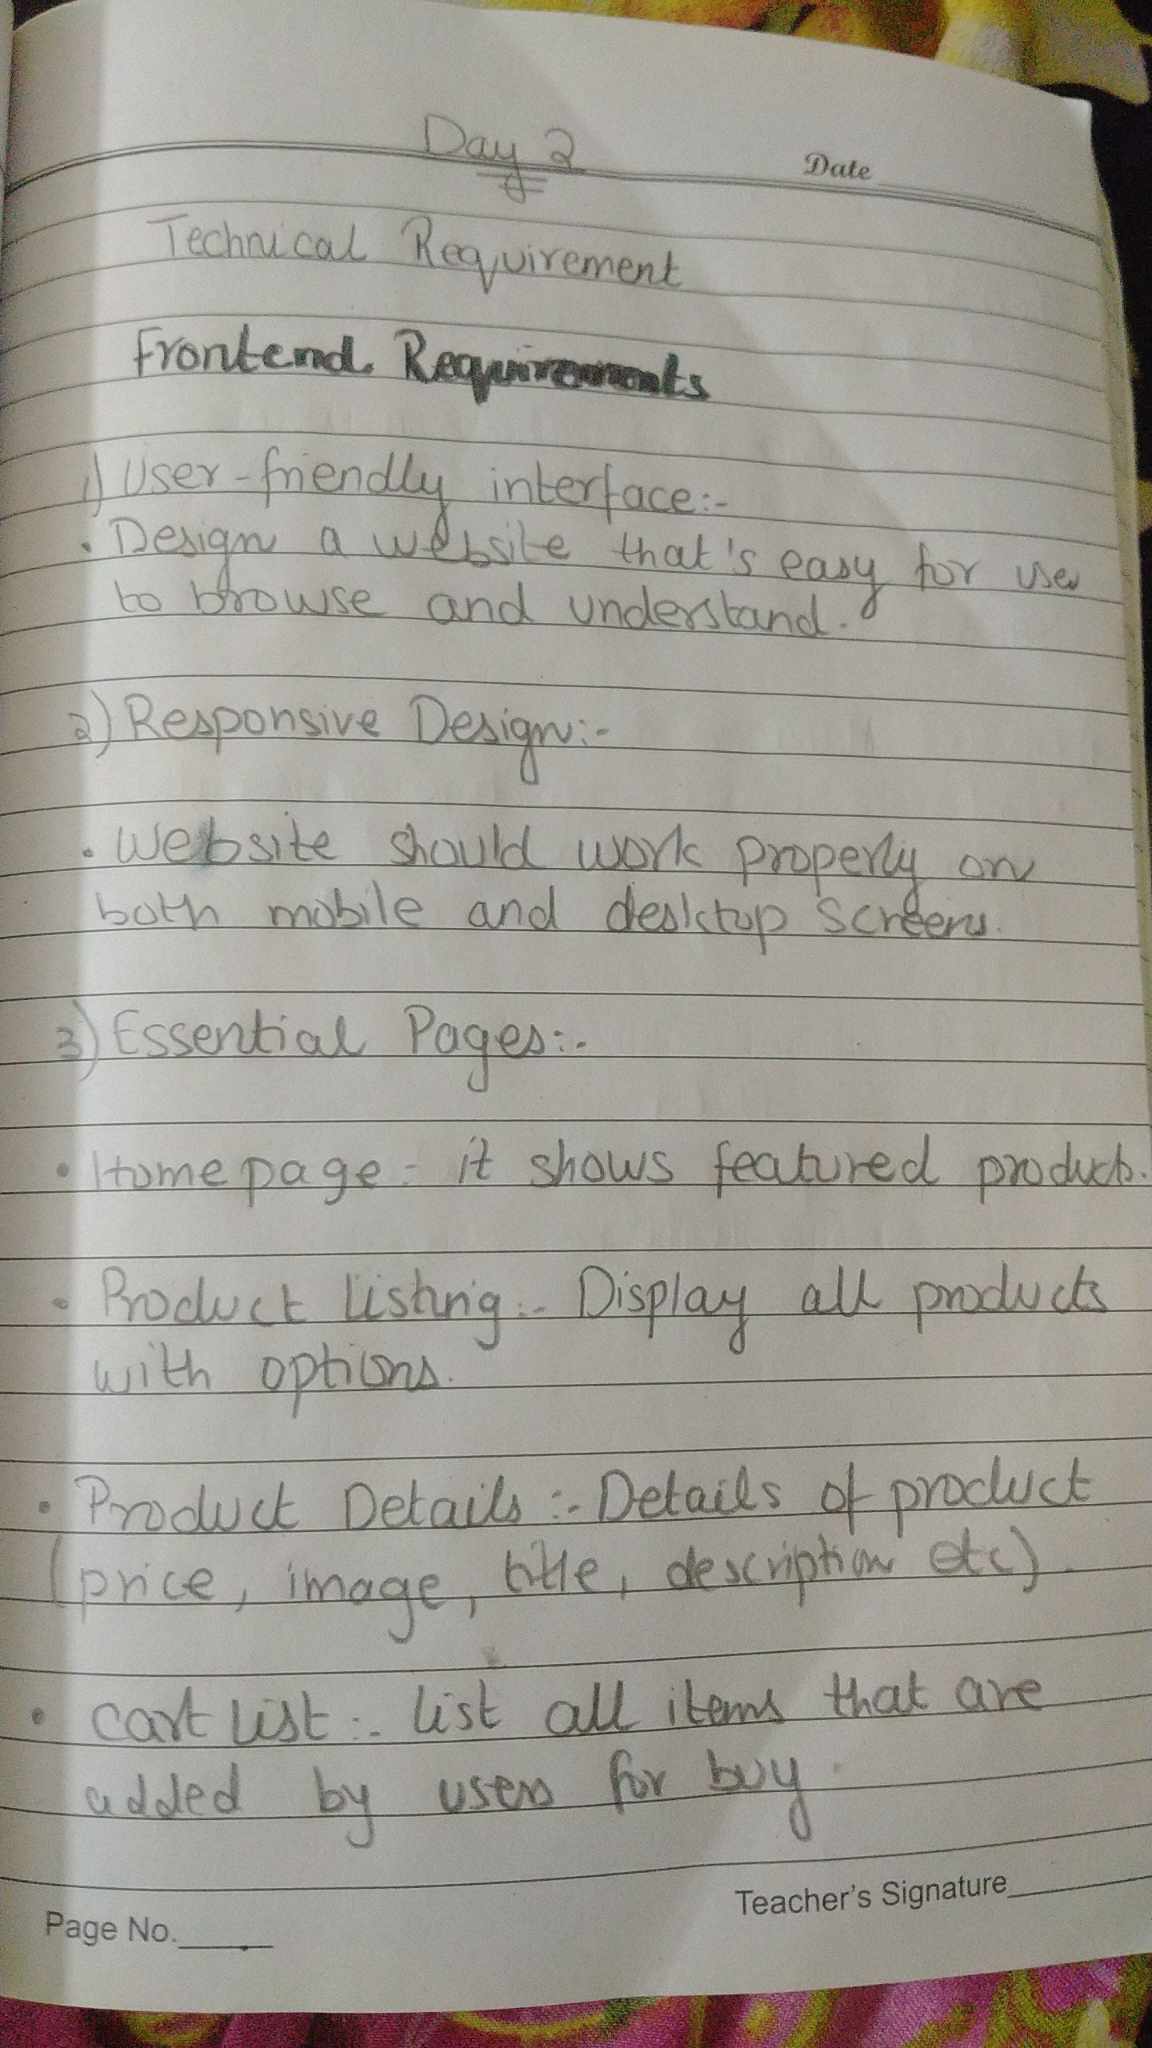 Day 2
Date
Technical Requirement
Frontend Requirements
1) User-friendly interface:-
• Design a website that's easy for user
to browse and understand.
2) Responsive Design:-
• Website should work properly on
both mobile and desktop screens.
3) Essential Pages:-
• Home page - it shows featured products.
• Product listing:- Display all products
with options.
• Product Details :- Details of product
(price, image, title, description etc).
• Cart List :- list all items that are
added by users for buy.
Teacher's Signature
Page No.